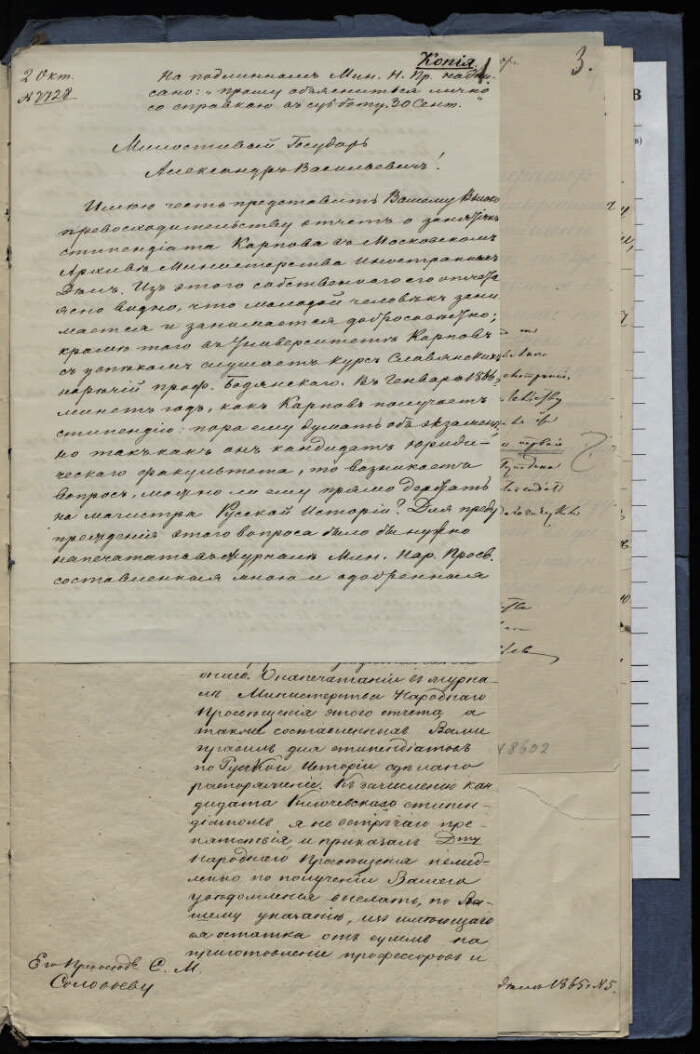 Копія
3.
2 Окт.
№ 7728
На подлинномъ Мин. Н. Пр. надпи-
сано: "прошу объясниться лично
со справкою въ субботу. 30 Сент."
Милостивый Государь
Александръ Васильевичъ!
Имѣю честь представить Вашему Высоко
превосходительству отчетъ о занятіяхъ
стипендіата Карпова въ Московскомъ
Архивѣ Министерства Иностранныхъ
Дѣлъ. Изъ этого собственного его отчета
ясно видно, что молодой человѣкъ зани
мается и занимается добросовѣстно;
кромѣ того въ Университетѣ Карповъ
съ успѣхомъ слушаетъ курсъ Славянскихъ
нарѣчій проф. Бодянскаго. Въ Генварѣ 1866
минетъ годъ, какъ Карповъ получаетъ
стипендію: пора ему думать объ экзамен
но такъ какъ онъ кандидатъ юриди-
ческаго факультета, то возникаетъ
вопросъ, можно ли ему прямо держать
на магистра Русской Исторіи? Для преду
прежденія этого вопроса было бы нужно
напечатать въ Журналѣ Мин. Нар. Просв.
составленныя мною и одобренныя
О напечатаніи въ журна-
лѣ Министерства Народнаго
Просвѣщенія этого отчета, а
также составленныхъ Вами
правилъ для стипендіатовъ
по Русской Исторіи сдѣлано
распоряженіе. Къ зачисленію кан-
дидата Ключевскаго стипен-
діатомъ я не встрѣчаю пре-
пятствія и приказалъ Дту
Народнаго Просвѣщенія немед-
ленно по полученіи Вашего
увѣдомленія выслать, по Ва-
шему указанію, изъ имѣющаго
ся остатка отъ суммъ на
приготовленіе профессоровъ и
Его Превосход. С. М.
Соловьеву
и первый
№ 8602
1865 № 5.